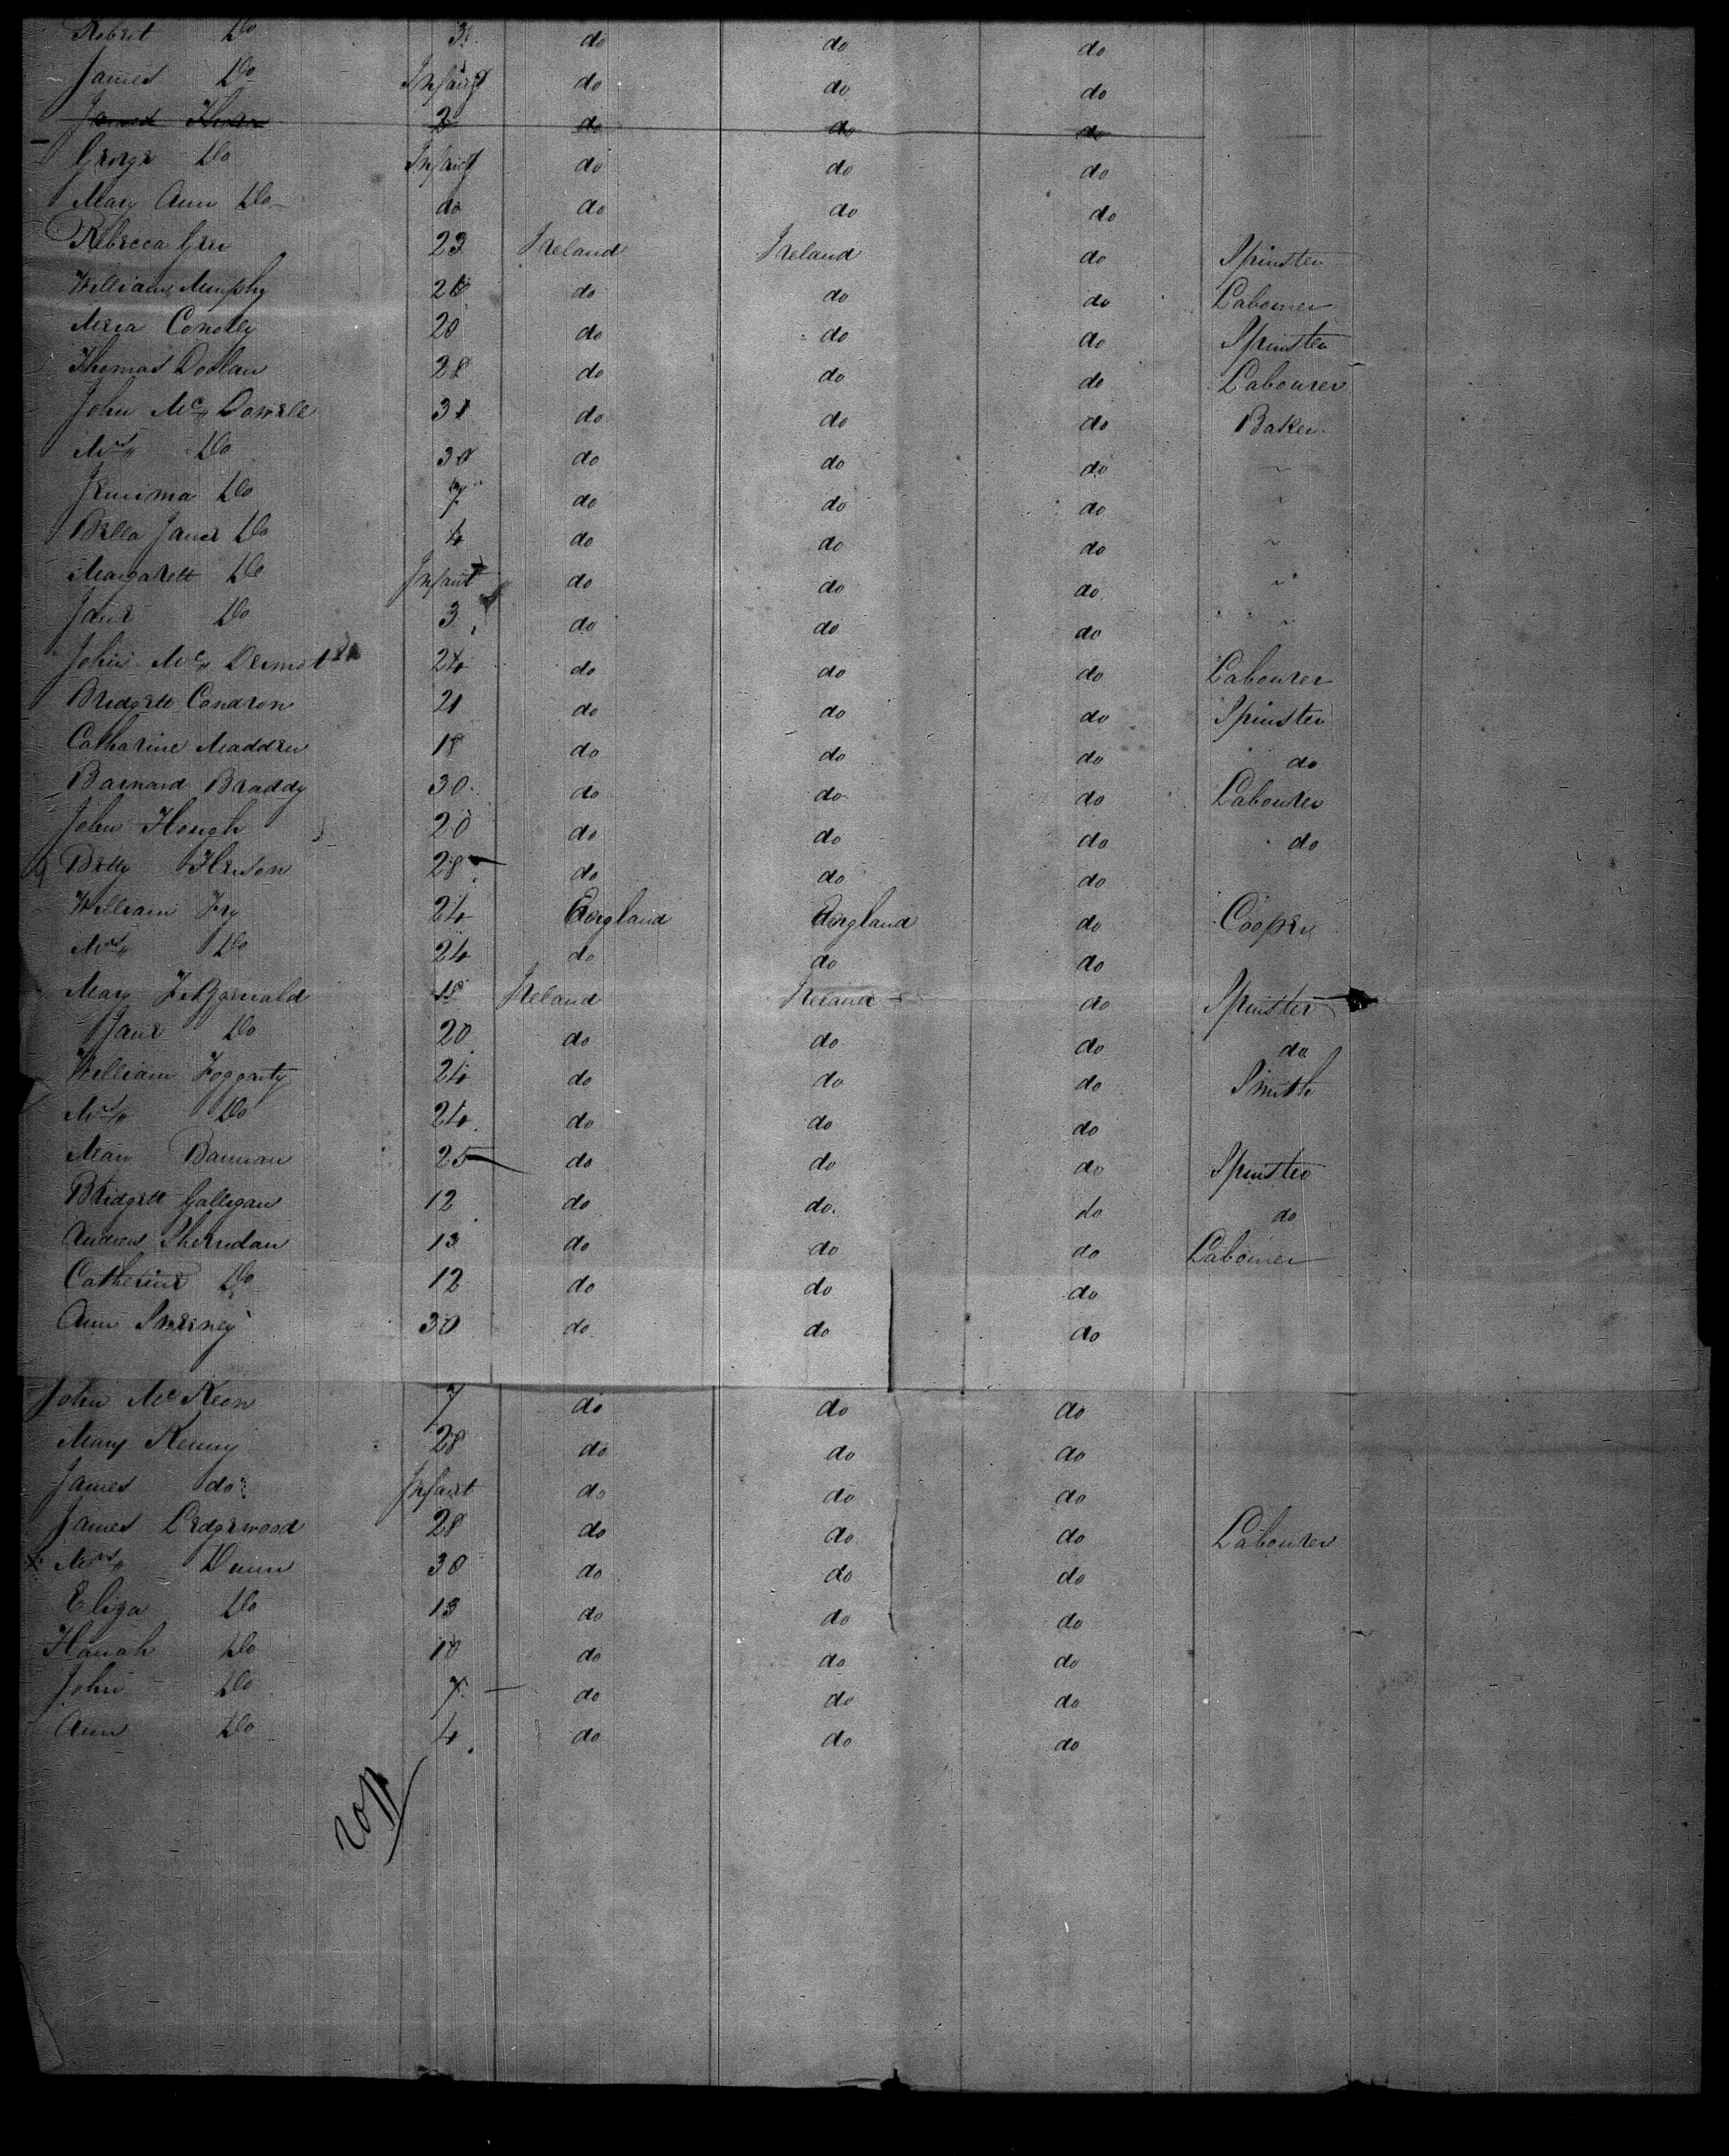 Robert Do 3 do do do
James Do Infant do do do
James 2 do do do
George Do Infant do do do
Mary Ann Do do do do do
Rebecca 23 Ireland Ireland do Spinster
William Murphy 26 do do do Labourer
Maria Conolly 20 do do do Spinster
Thomas Doolan 28 do do do Labourer
John Mc Dowell 31 do do do Baker
Mrs Do 30 do do do
Jemima Do 7 do do do
Bella Jane Do 4 do do do
Margarett Do Infant do do do
Jane Do 3 do do do
John Mc Dermot 24 do do do Labourer
Bridgett Condron 21 do do do Spinster
Catharine Madden 18 do do do do
Barnard Braddy 30 do do do Labourer
John Hough 20 do do do do
Betty 28 do do do
William Fry 24 England England do Cooper
Mrs Do 24 do do do
Mary Fitzgerald 18 Ireland Ireland do Spinster
Jane Do 20 do do do do
William Foggarty 24 do do do Smith
Mrs Do 24 do do do
Mary Bannan 25 do do do Spinster
Bridgett Galligan 12 do do. do do
Andrew Sherridan 13 do do do Labourer
Catherine Do 12 do do do
Ann Sweeney 30 do do do
John Mc Keon 7 do do do
Mary Kenny 28 do do do
James do Infant do do do
James Ledgerwood 28 do do do Labourer
x Mrs Dunn 30 do do do
Eliza Do 13 do do do
Hanah Do 10 do do do
John Do 7 do do do
Ann Do 4 do do do